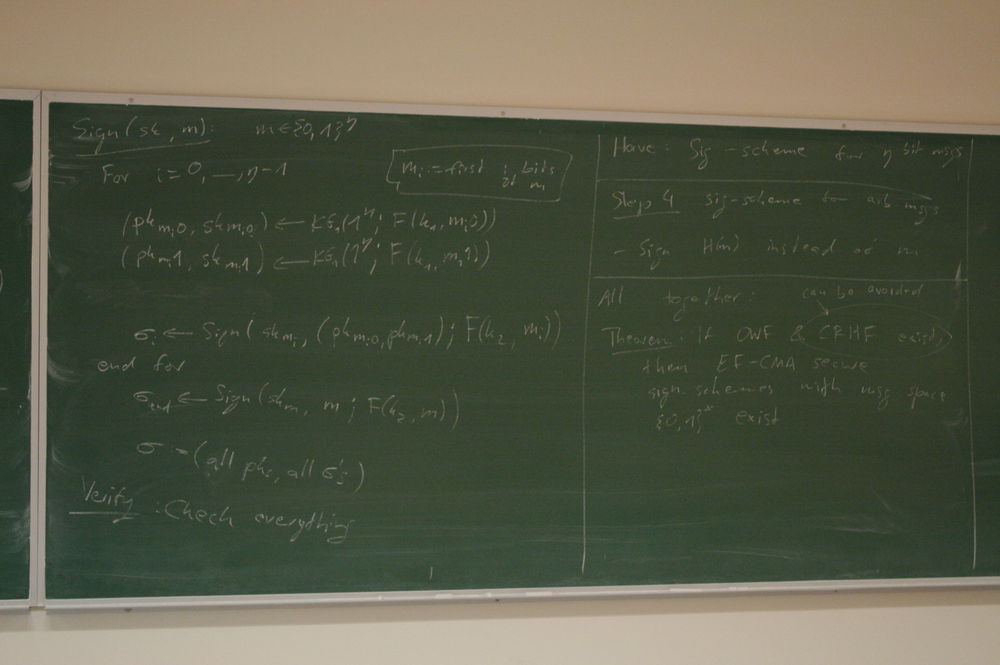 Sign(sk, m): m∈{0,1}^η
For i=0,…,η-1
m_i := first i bits of m
(pk_{m_i0}, sk_{m_i0}) ← KG_1(1^η; F(k_1, m_i0))
(pk_{m_i1}, sk_{m_i1}) ← KG_1(1^η; F(k_1, m_i1))
σ_i ← Sign(sk_{m_i}, (pk_{m_i0}, pk_{m_i1}); F(k_2, m_i))
end for
← Sign(sk_m, m; F(k_2, m))
σ = (all pks, all σ's)
Verify: Check everything
Have: Sig-scheme for η bit msgs
Step 4 sig-scheme for arb-msgs
- Sign H(m) instead of m
All together: can be avoided
Theorem: If OWF & CRHF exist,
then EF-CMA secure
sign schemes with msg space
{0,1}* exist